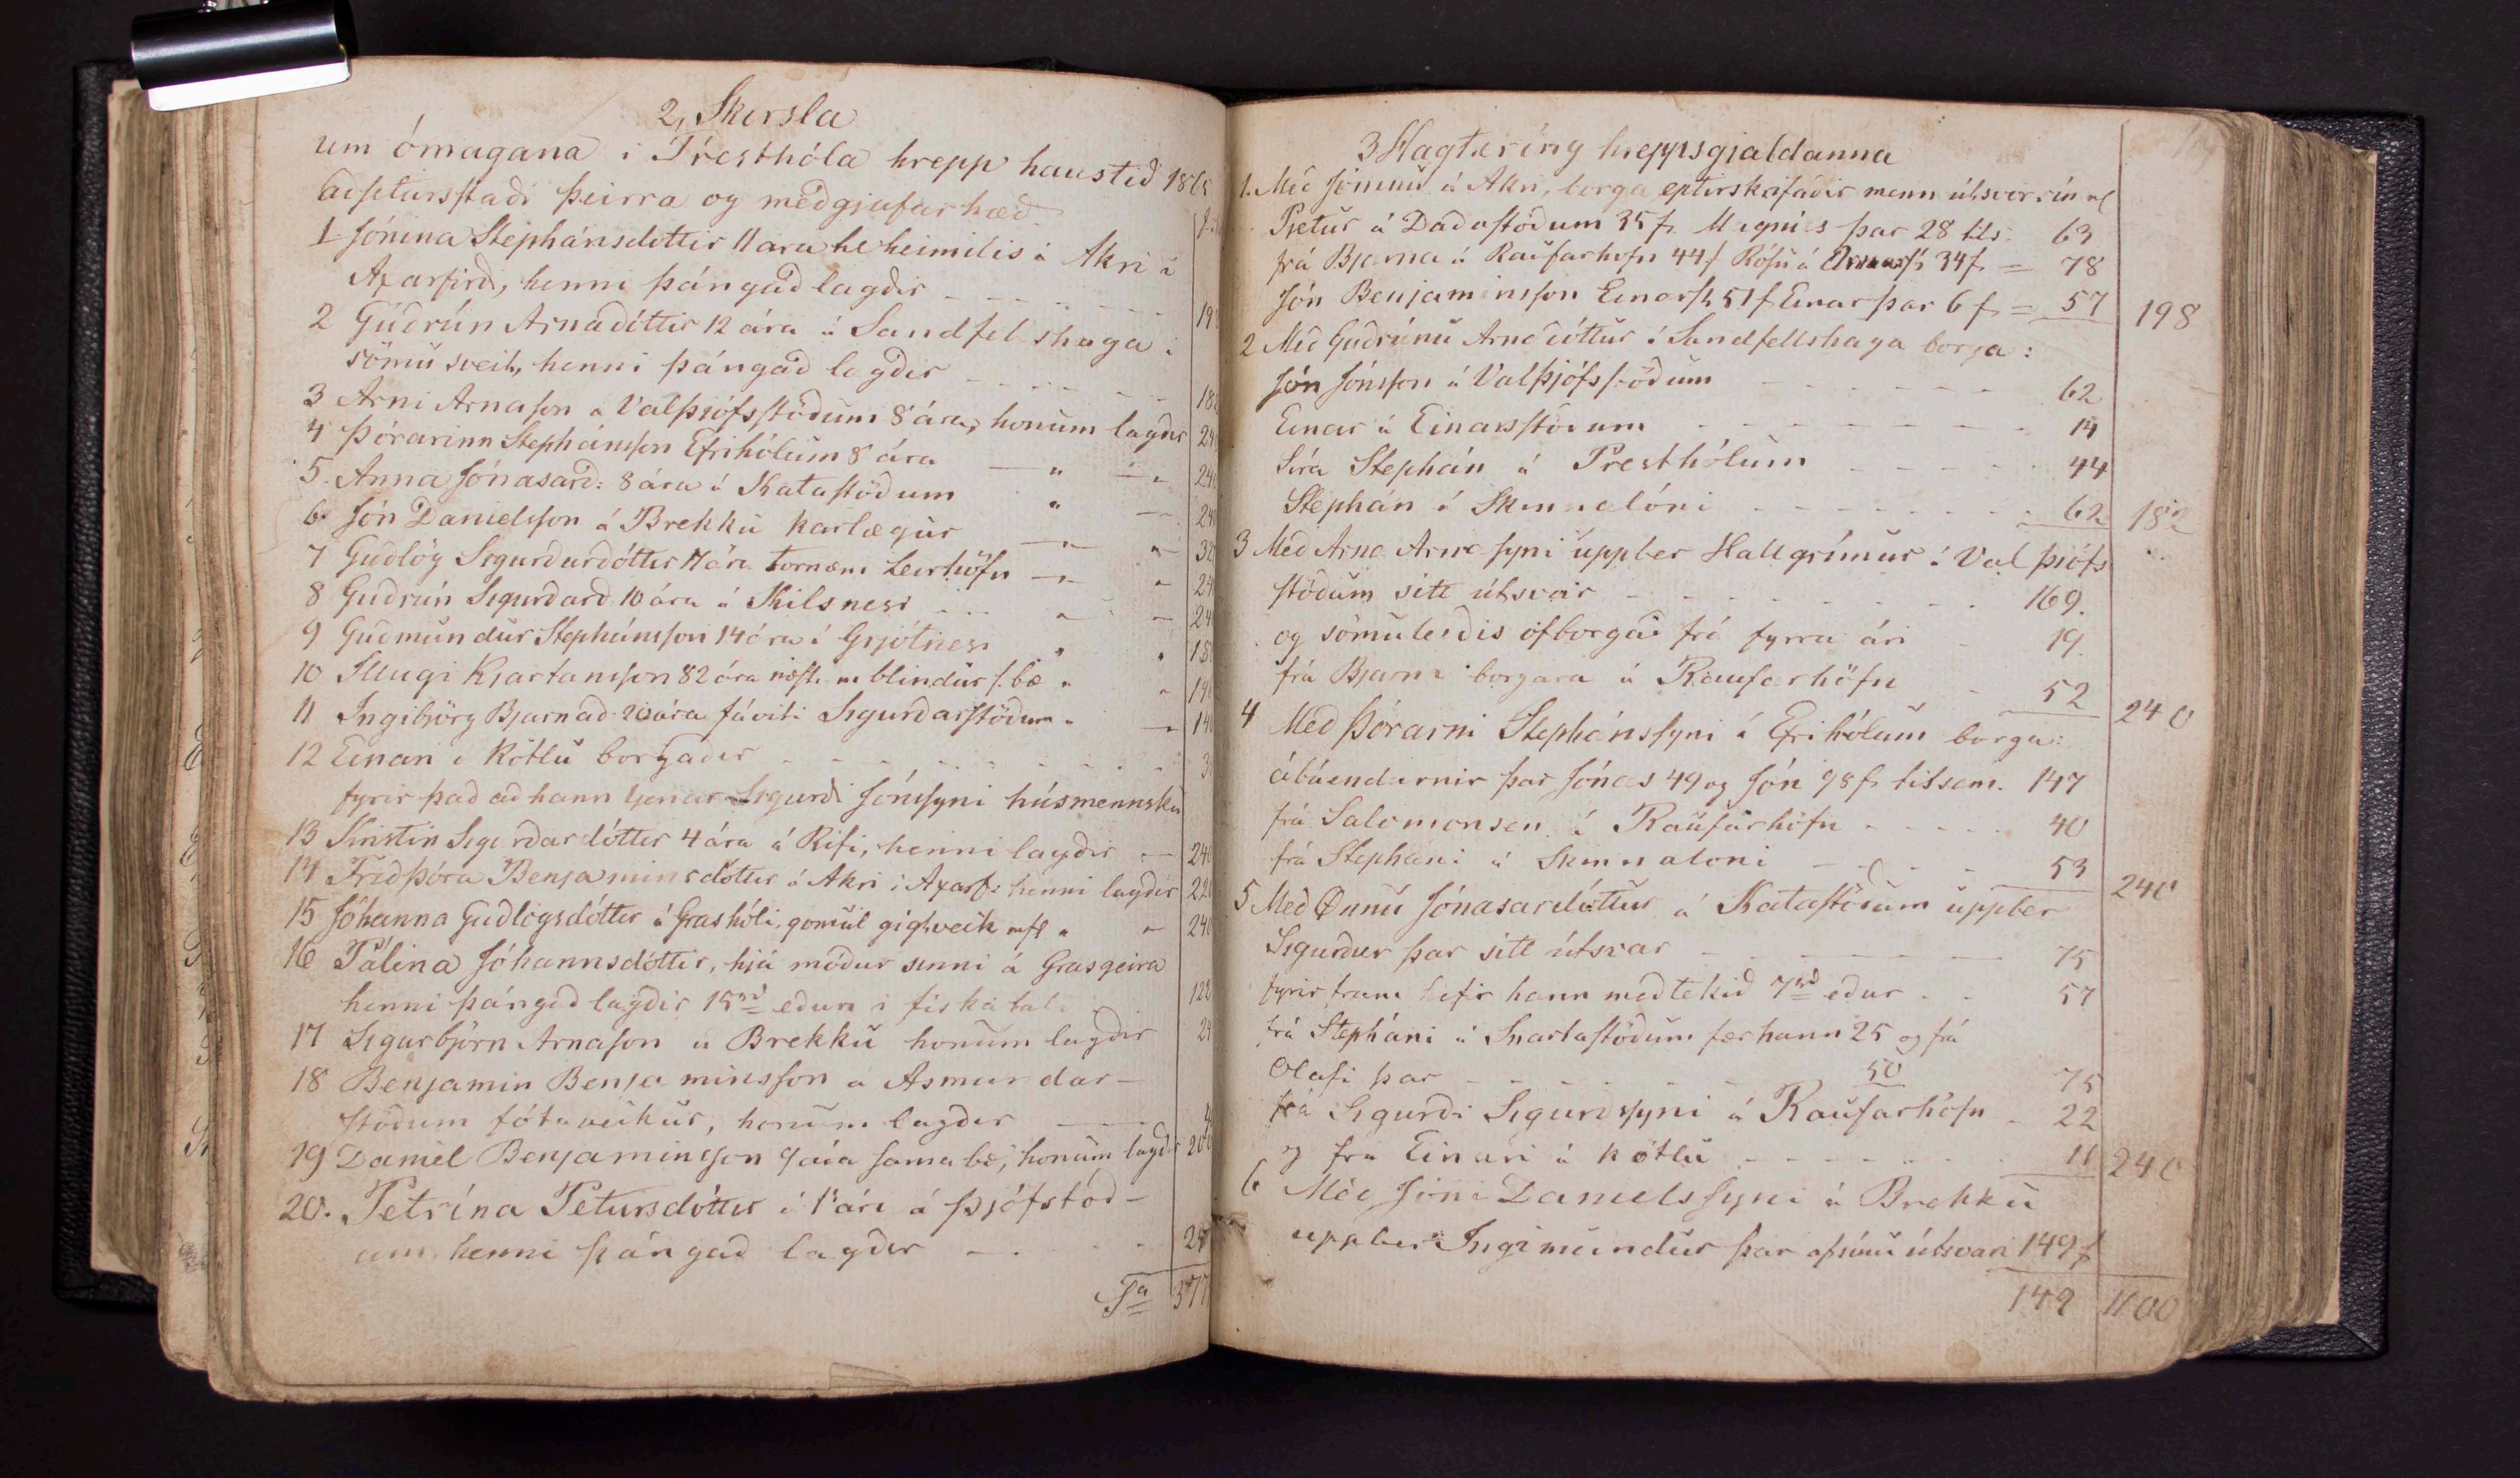 2, Skirsla
um ómagana i Presthóla hrepp haustið 186
aðsetursstaði þeirra og meðgjafar hæð
1 Jónína Stephánsdottir 11 ara til heimilis á Akri i
Axarfirði, henni þángað lagðir - - - - 19
2 Guðrún Arnadóttir 12 ára á Sandfelshaga i
sömu sveit, henni þángað lagðir - - - - 18
3 Arni Arnason a Valþjófsstöðum 8 ára, honum lagðir 24
4 Þórarinn Stephánsson Efrihólum 8 ára — " — " 240
5. Anna Jónasard: 8 ára á Katastöðum " — 240
6. Jón Danielsson á Brekku karlægur — " " 32
7 Guðlög Sigurðardóttir 11 ára tornæm Leirhöfn — " " 24
8 Guðrún Sigurðard. 10 ára á Skilsnesi " — 24
9 Guðmundur Stephánsson 14 ára á Grjótnesi " " 18
10 Illugi Kjartansson 82 ára næst. m blindur s. bæ " " 19
11 Ingibjörg Bjarnad. 20 ára fáviti Sigurðarstöðum " — 14
12 Einari á Kötlu borgaðir - - - - 3
fyrir það að hann ljenar Sigurði Jónssyni húsmennsku
13 Kristín Sigurðardóttir 4 ára á Rifi, henni lagðir — 240
14 Friðþóra Benjaminsdóttir á Akri i Axarf. henni lagðir 220
15 Jóhanna Guðlögsdóttir á Grashóli, gömul gigtveik mfl " — 240
16 Pálina Jóhannsdóttir, hjá móður sinni á Grasgeira
henni þángað lagðir 15 rd eður i fiskatali 122
17 Sigurbjörn Arnason á Brekku honum lagðir 24
18 Benjamin Benjaminsson a Asmundar-
stöðum fótaveikur, honum lagðir — 4
19 Daniel Benjaminsson 9 ára sama bæ, honum lagðir 200
20. Petrína Petursdóttir á 1 ári á Þjófstöð-
um. henni þángað lagðir - - - 24
Sa 377
3 Hagtæring hreppsgjaldanna
1. Með Jónínu á Akri, borga eptirskrifaðir menn útsvör sín al
Pjetur á Daðastöðum 35 f. Magnús þar 28 tils. 63
frá Bjarna á Raufarhöfn 44 f Rósu á 34 f = 78
Jón Benjaminsson Einarsst. 51 f Einar þar 6 f = 57 198
2 Með Guðrúnu Arnadóttur á Sandfellshaga borga:
Jón Jónsson á Valþjófsstöðum - - - - 62
Einar á Einarsstöðum - - - - 14
Síra Stephán á Presthólum - - - - 44
Stephán á Skinnalóni - - - - 62 182
3 Með Arna Arnasyni uppber Hallgrímur á Valþjófs
stöðum sitt útsvar - - - - 169.
og sömuleiðis ofborgað frá fyrra ári - 19.
frá Bjarna borgara á Raufarhöfn - 52 240
4 Með Þórarni Stephánssyni á Efrihólum borga:
ábúendurnir þar Jónas 49 og Jón 98 f. tilsam. 147
frá Salomonsen á Raufarhöfn - - - - 40
frá Stepháni á Skinnalóni - - - - 53 240
5 Með Önnu Jónasardóttur á Katastöðum uppber
Sigurður þar sitt útsvar - - - - 75
fyrirfram hefir hann meðtekið 7 rd eður - - 57
frá Stepháni á Snartastöðum fær hann 25 og frá
Olafi þar - - - - 50 75
frá Sigurði Sigurðssyni á Raufarhöfn - 22
og frá Einari á Kötlu - - - - 11 240
6 Með Jóni Danielssyni á Brekku
uppber Ingimundur þar afsínu útsvari 149 f
149 1100